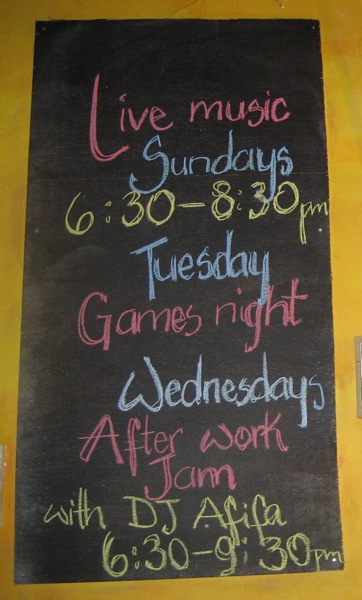 Live music
Sundays
6:30-8:30pm
Tuesday
Games night
Wednesdays
After work
Jam
with DJ Afifa
6:30-9:30pm